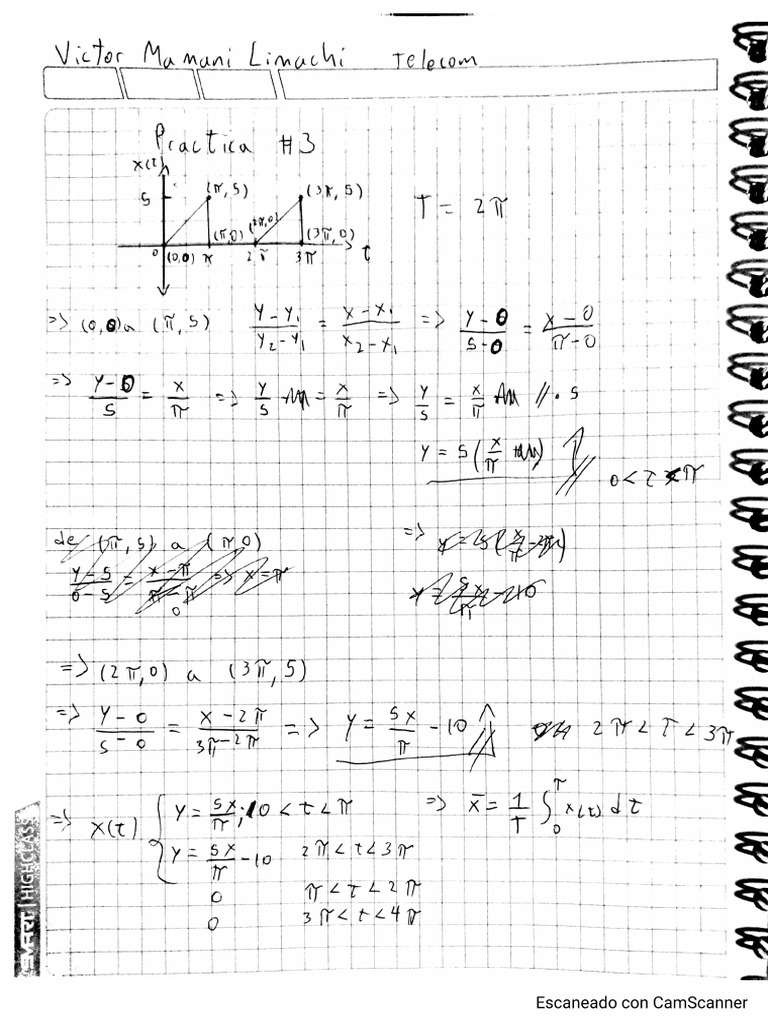 Victor Mamani Limachi Telecom
Practica #3
x(t)
5 (π, 5) (3π, 5)
T = 2π
(π,0) (2π,0) (3π,0)
0 (0,0) π 2π 3π t
=> (0,0) a (π,5) (y-y₁)/(y₂-y₁) = (x-x₁)/(x₂-x₁) => (y-0)/(5-0) = (x-0)/(π-0)
=> (y-0)/5 = x/π => y/5 = x/π => y/5 = x/π //·5
y = 5(x/π) 0<t<π
de (π,5) a (π,0) =>
(y-5)/(0-5) = (x-π)/(π-π) => x=π
0
=> (2π,0) a (3π,5)
=> (y-0)/(5-0) = (x-2π)/(3π-2π) => y = 5x/π - 10 2π<t<3π
=> x(t) { y = 5x/π; 0<t<π => x̄ = 1/T ∫₀ᵀ x(t) dt
y = 5x/π - 10 2π<t<3π
0 π<t<2π
0 3π<t<4π
SMART | HIGHCLASS
Escaneado con CamScanner